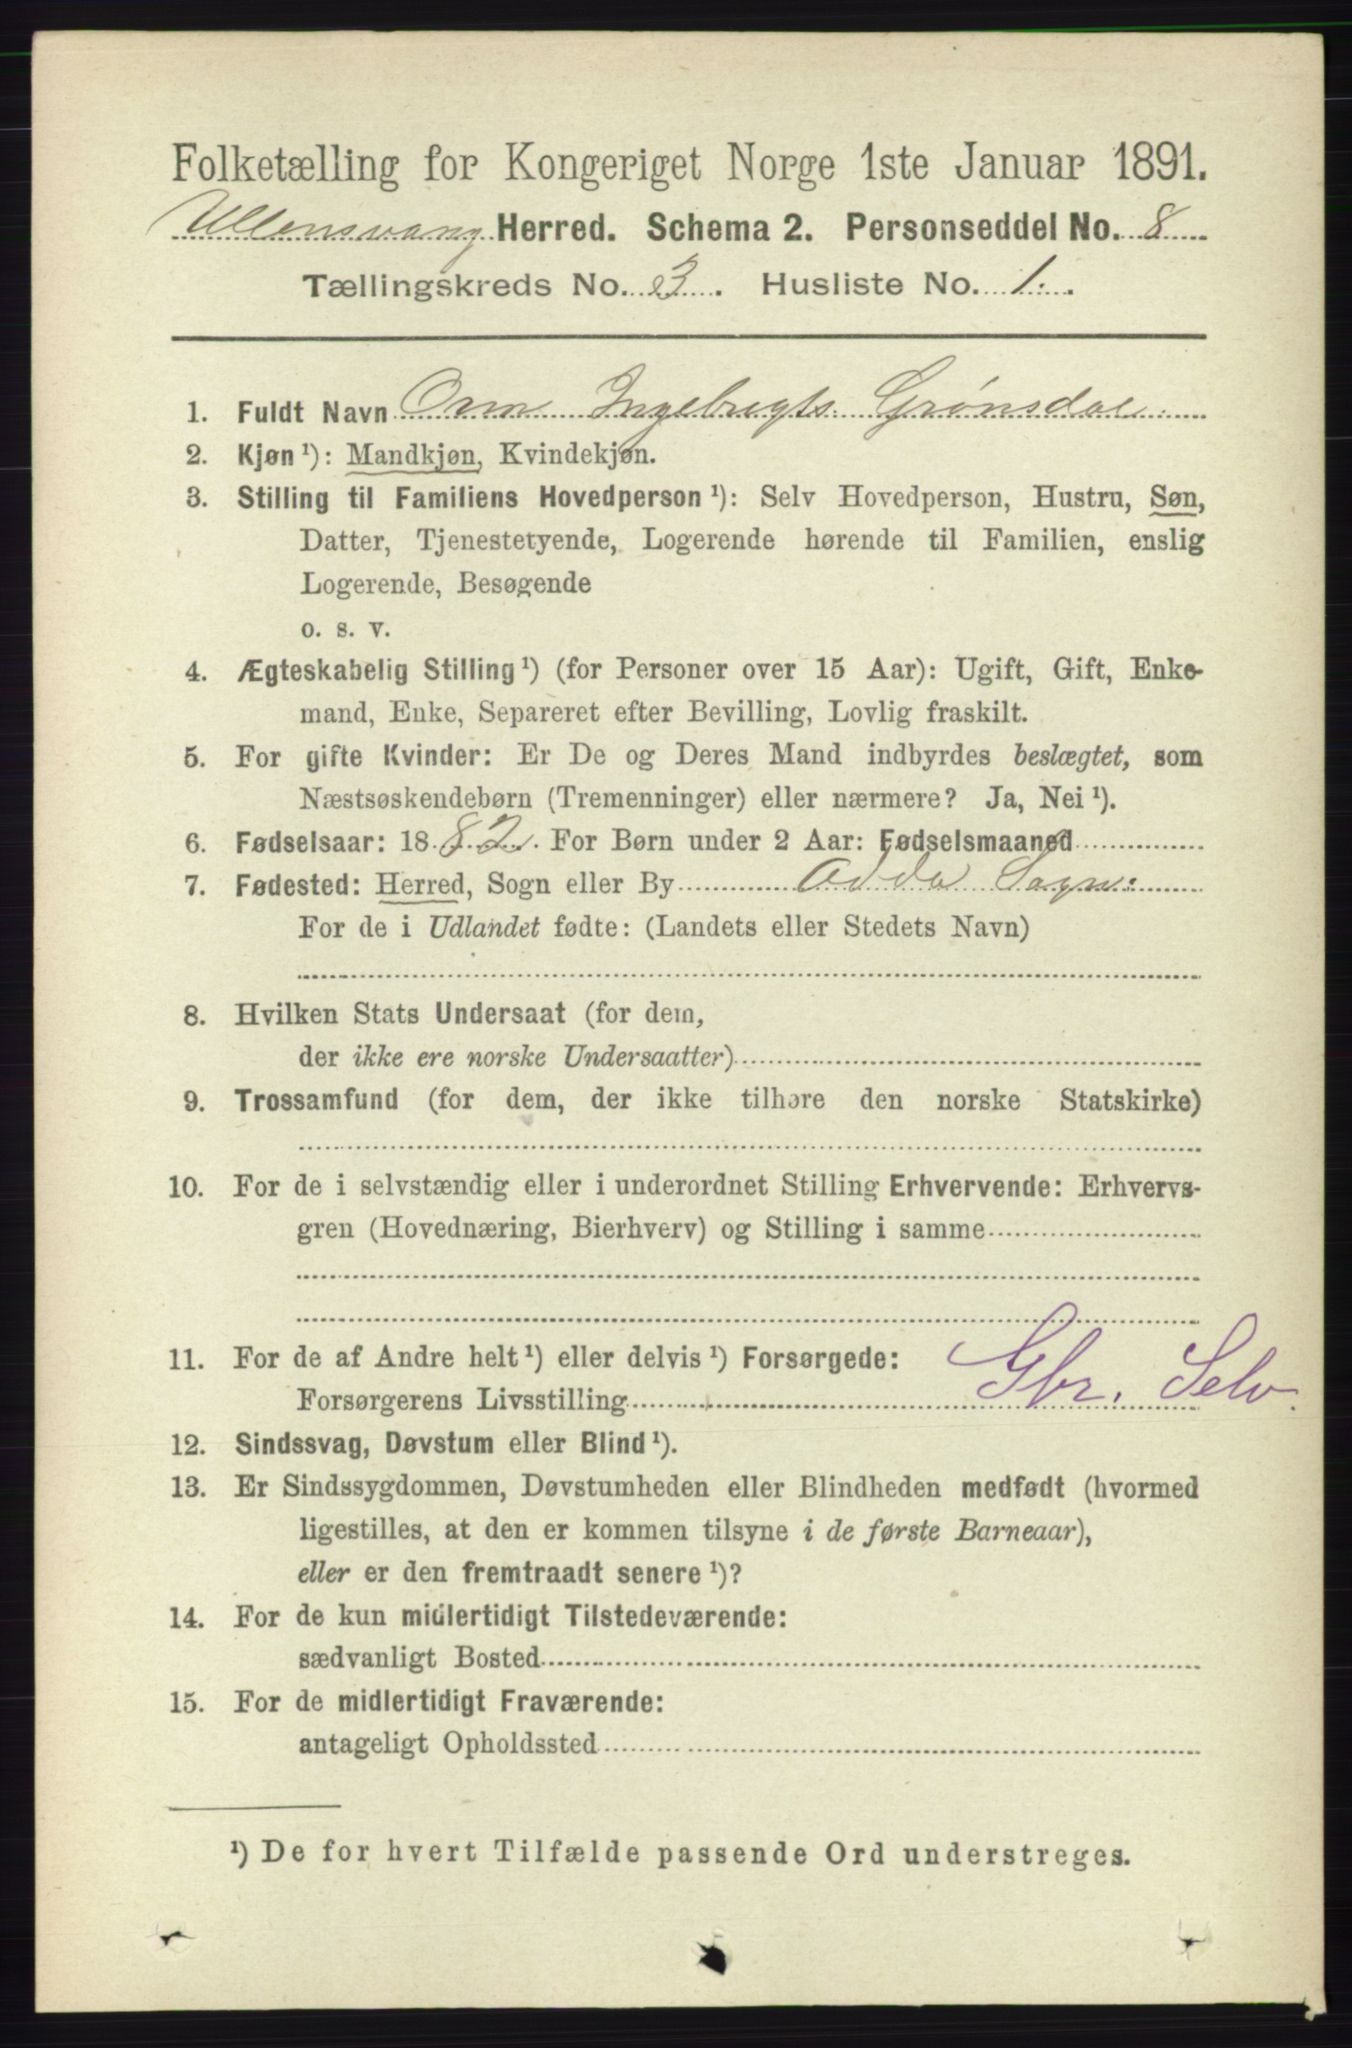 Folketælling for Kongeriget Norge 1ste Januar 1891.
Ullensvang Herred. Schema 2. Personseddel No. 8
Tællingskreds No. 3. Husliste No. 1.
1. Fuldt Navn Orm Ingebrigts. Grønsdal
2. Kjøn ¹): Mandkjøn, Kvindekjøn.
3. Stilling til Familiens Hovedperson ¹): Selv Hovedperson, Hustru, Søn,
Datter, Tjenestetyende, Logerende hørende til Familien, enslig
Logerende, Besøgende
o. s. v.
4. Ægteskabelig Stilling ¹) (for Personer over 15 Aar): Ugift, Gift, Enke-
mand, Enke, Separeret efter Bevilling, Lovlig fraskilt.
5. For gifte Kvinder: Er De og Deres Mand indbyrdes beslægtet, som
Næstsøskendebørn (Tremenninger) eller nærmere? Ja, Nei ¹).
6. Fødselsaar: 1882. For Børn under 2 Aar: Fødselsmaaned
7. Fødested: Herred, Sogn eller By Odda Sogn.
For de i Udlandet fødte: (Landets eller Stedets Navn)
8. Hvilken Stats Undersaat (for dem,
der ikke ere norske Undersaatter)
9. Trossamfund (for dem, der ikke tilhøre den norske Statskirke)
10. For de i selvstændig eller i underordnet Stilling Erhvervende: Erhvervs-
gren (Hovednæring, Bierhverv) og Stilling i samme
11. For de af Andre helt ¹) eller delvis ¹) Forsørgede:
Forsørgerens Livsstilling Gbr. Selv.
12. Sindssvag, Døvstum eller Blind ¹).
13. Er Sindssygdommen, Døvstumheden eller Blindheden medfødt (hvormed
ligestilles, at den er kommen tilsyne i de første Barneaar),
eller er den fremtraadt senere ¹)?
14. For de kun midlertidigt Tilstedeværende:
sædvanligt Bosted
15. For de midlertidigt Fraværende:
antageligt Opholdssted
¹) De for hvert Tilfælde passende Ord understreges.